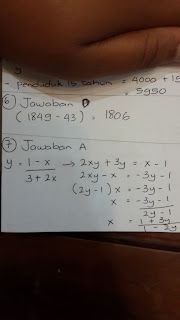 - Penduduk 15 tahun = 4000 + 15
= 5950
⑥ Jawaban D
(1849 - 43) = 1806
⑦ Jawaban A
y = 1 - x / 3 + 2x → 2xy + 3y = x - 1
2xy - x = -3y - 1
(2y - 1) x = -3y - 1
x = -3y - 1 / 2y - 1
x = 1 + 3y / 1 - 2y